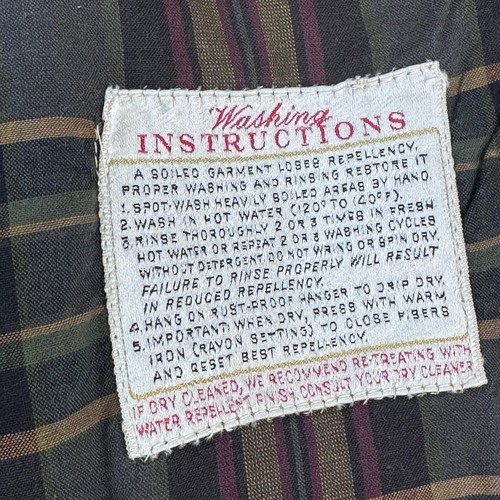 Washing
INSTRUCTIONS
A SOILED GARMENT LOSES REPELLENCY.
PROPER WASHING AND RINSING RESTORE IT
1. SPOT-WASH HEAVILY SOILED AREAS BY HAND.
2. WASH IN HOT WATER (120° TO 140°F).
3. RINSE THOROUGHLY 2 OR 3 TIMES IN FRESH
HOT WATER OR REPEAT 2 OR 3 WASHING CYCLES
WITHOUT DETERGENT. DO NOT WRING OR SPIN DRY.
FAILURE TO RINSE PROPERLY WILL RESULT
IN REDUCED REPELLENCY.
4. HANG ON RUST-PROOF HANGER TO DRIP DRY.
5. IMPORTANT: WHEN DRY, PRESS WITH WARM
IRON (RAYON SETTING) TO CLOSE FIBERS
AND RESET BEST REPELLENCY.
IF DRY CLEANED, WE RECOMMEND RE-TREATING WITH
WATER REPELLENT FINISH. CONSULT YOUR DRY CLEANER